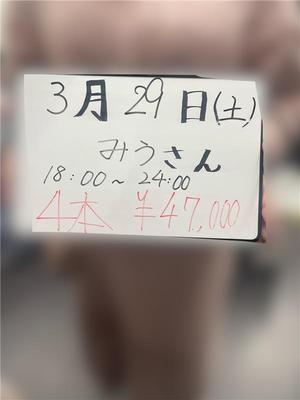 3月29日(土)
みうさん
18:00~24:00
4本 ¥47,000